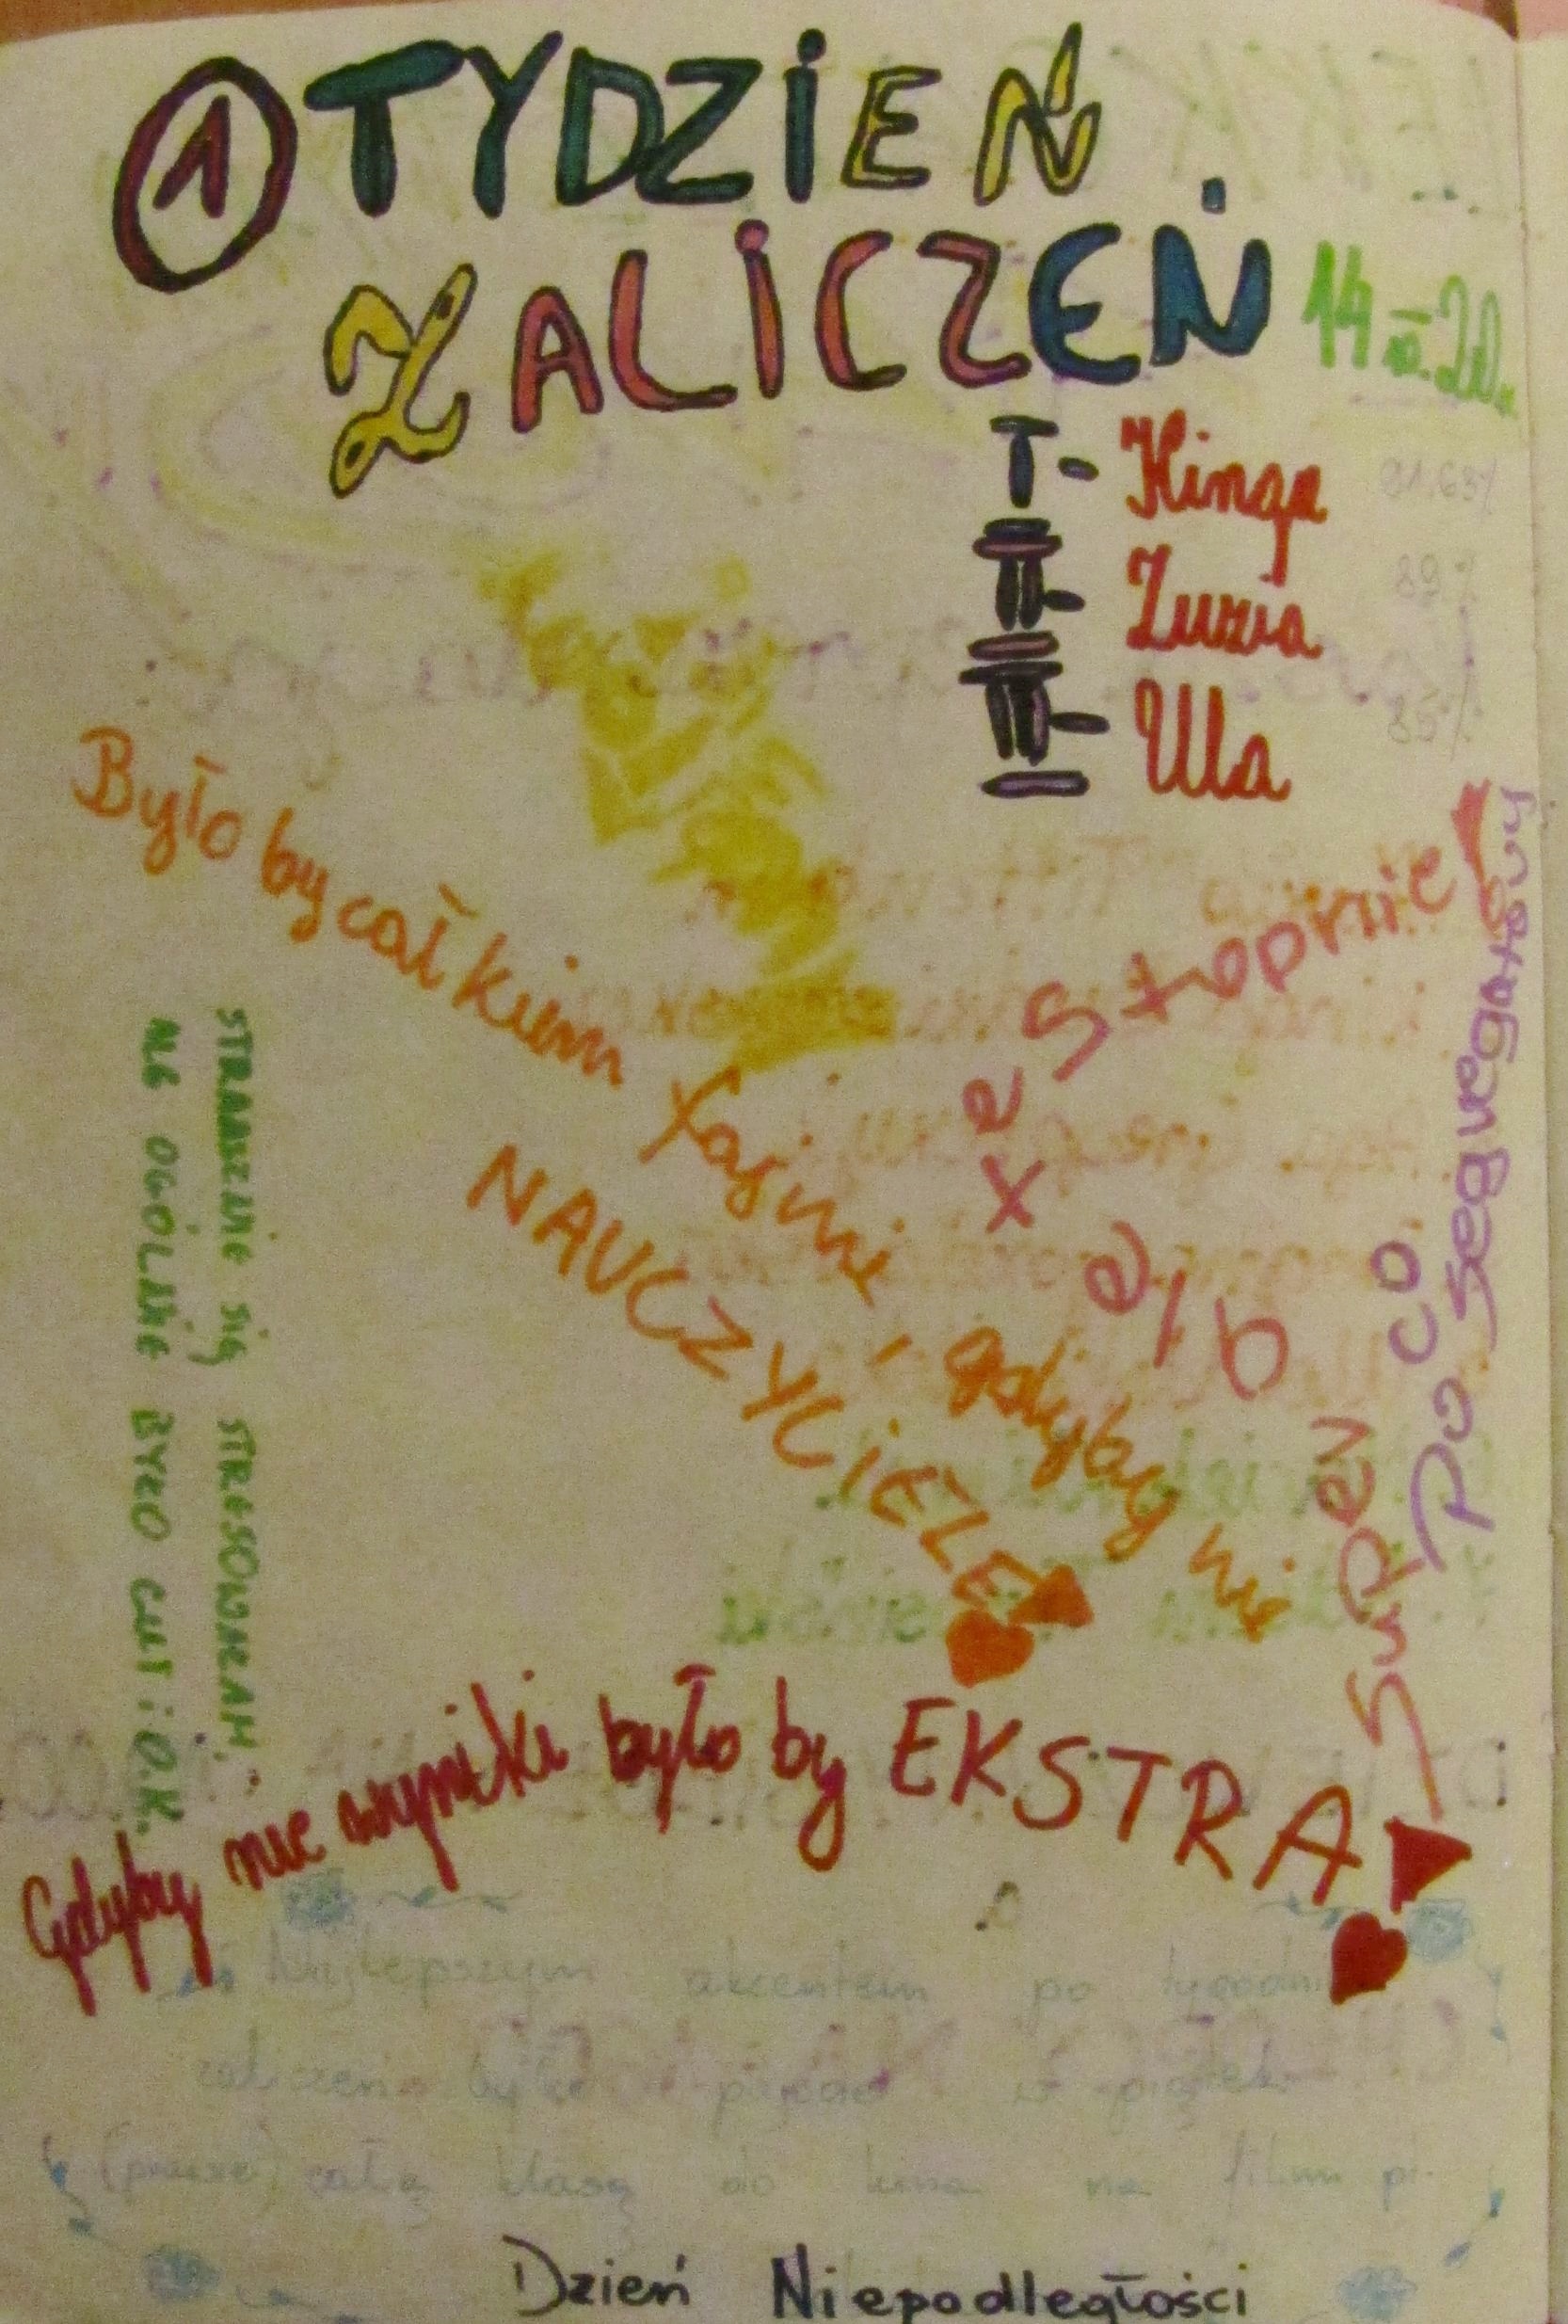 1 TYDZIEŃ
ZALICZEŃ
I - Kinga 91,63%
II - Zuzia 89%
III - Ula 85%
Było by całkiem fajnie, gdyby nie
NAUCZYCIELE!
Super ale te stopnie!
Po co segregatory
STRASZNIE SIĘ STRESOWAŁAM.
ALE OGÓLNIE BYŁO CULT i O.K.
Gdyby nie wyniki było by EKSTRA!
Najlepszym akcentem po tygodniu
zaliczeń było pójście w piątek
(prawie) całą klasą do kina na film pt.
Dzień Niepodległości